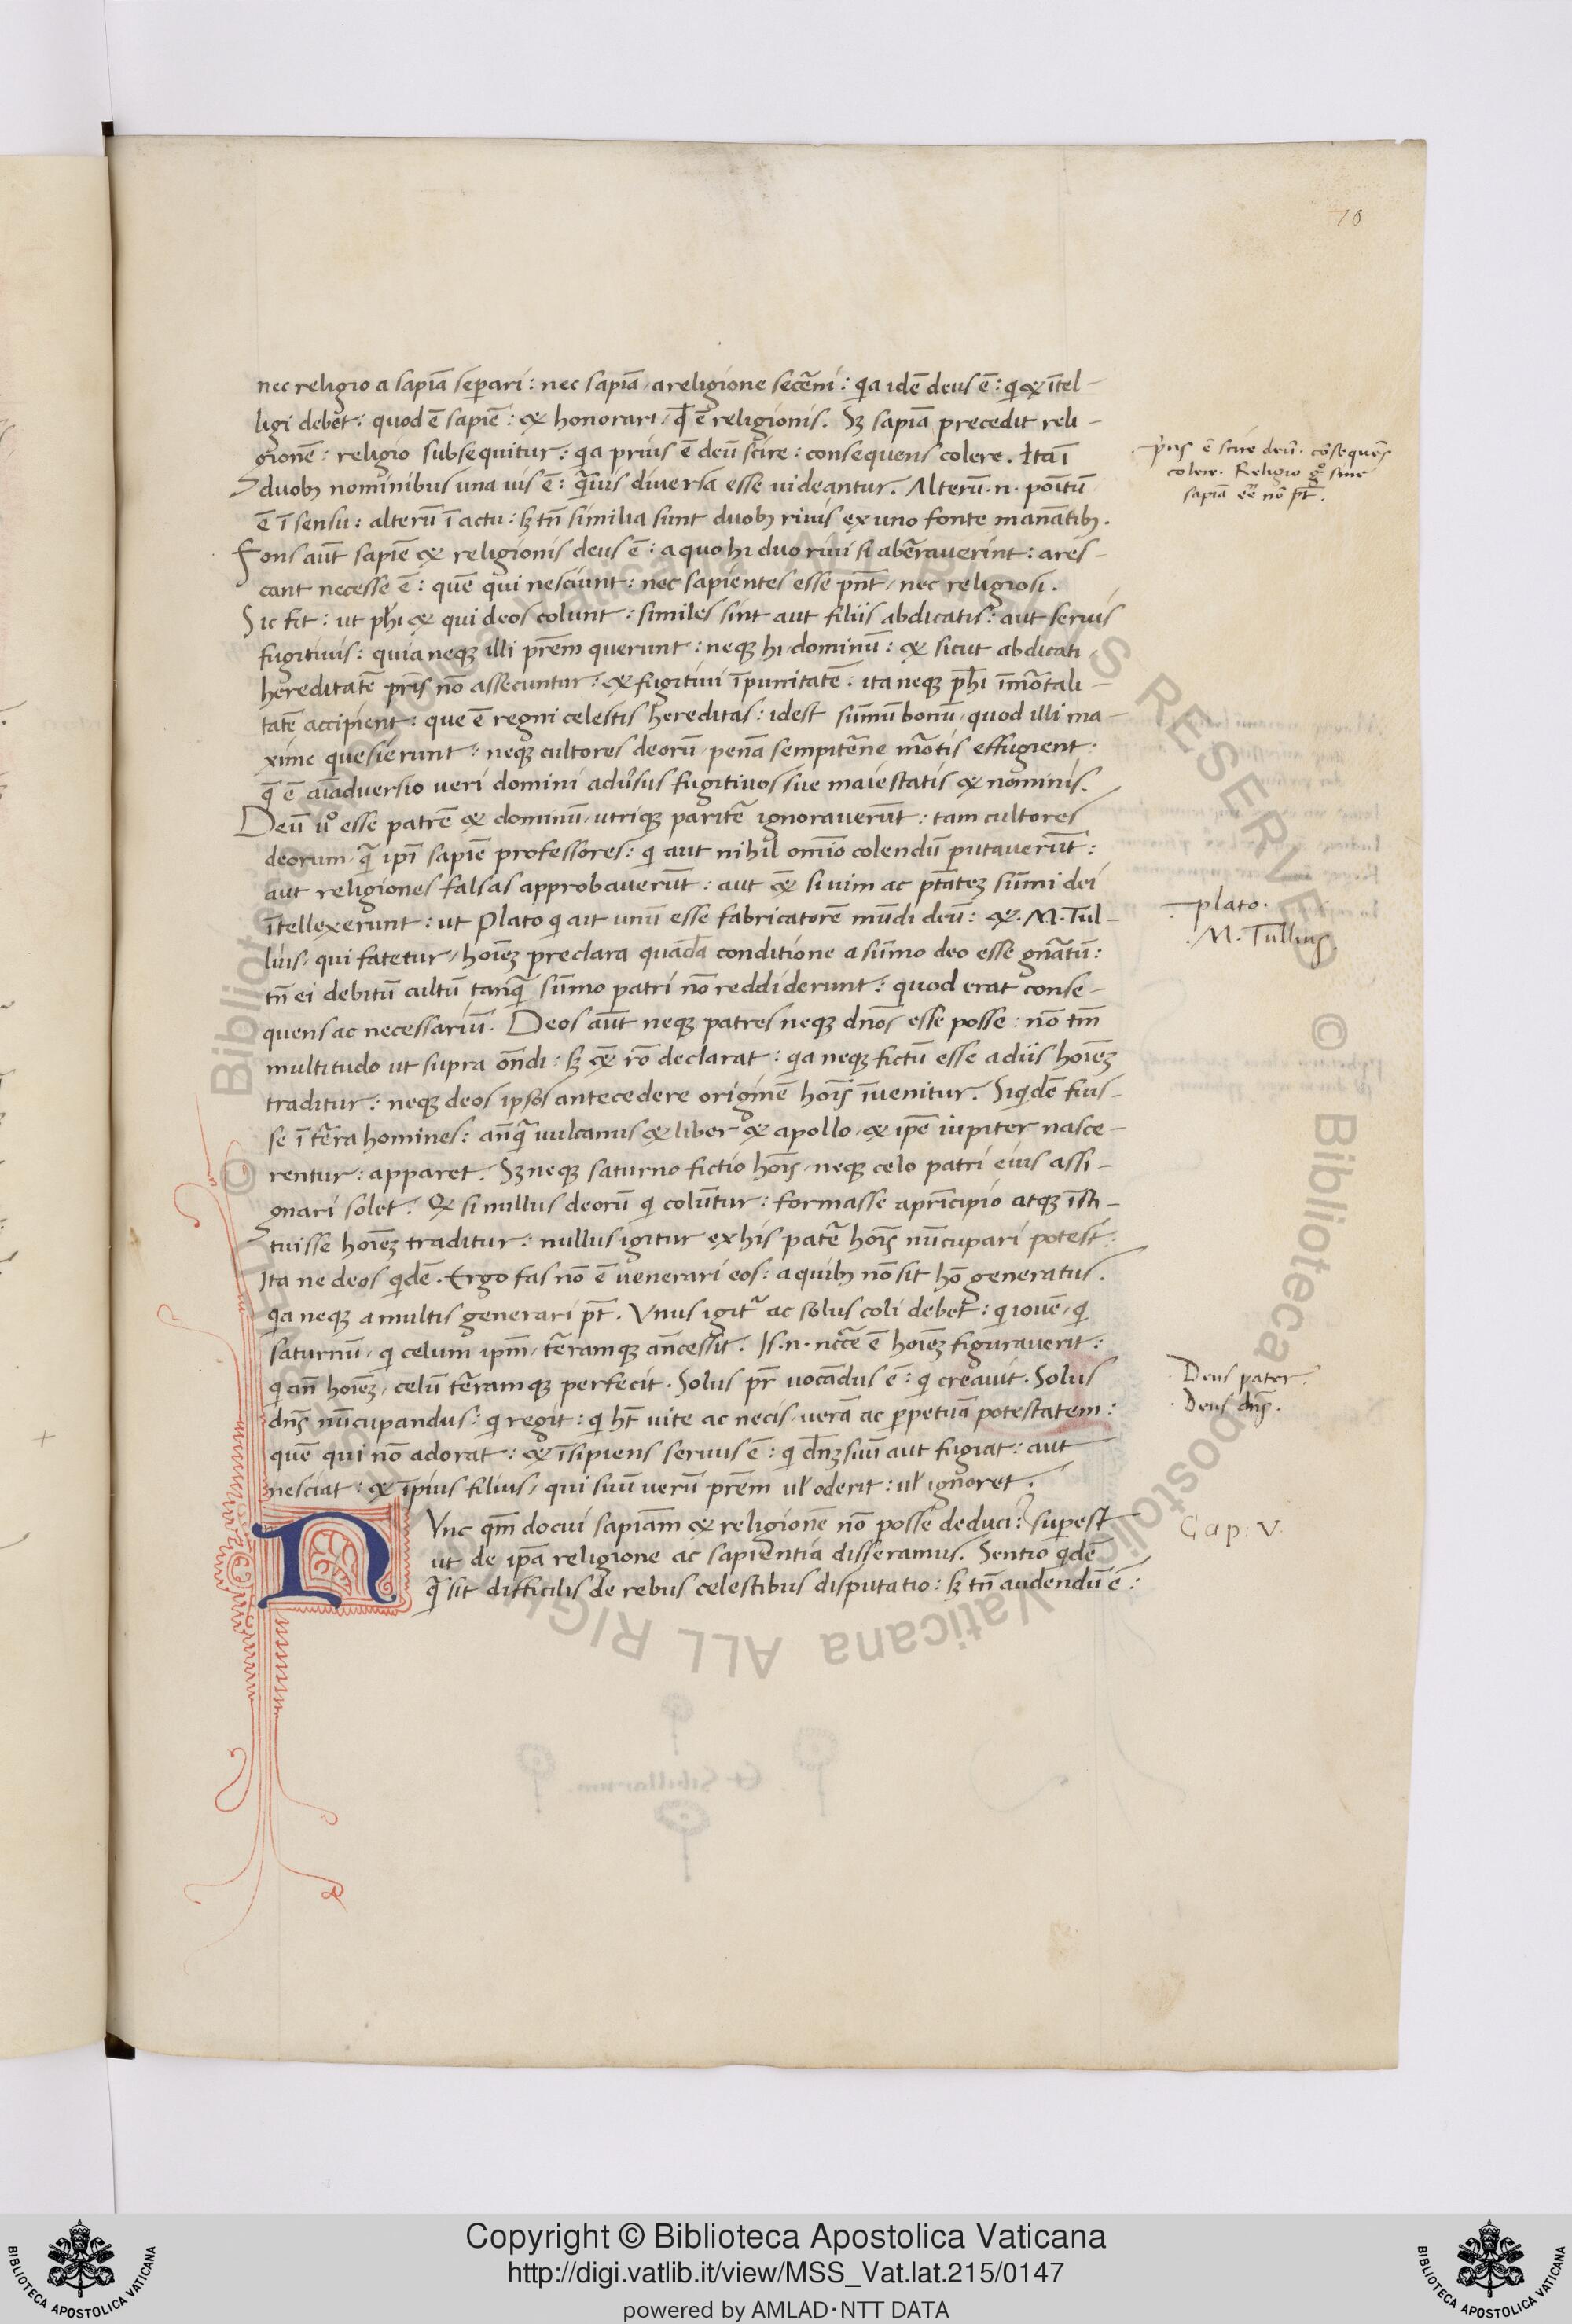 70
nec religio a sapiã seꝑari : nec sapiã a religione secẽni : q̃a idẽ deus ẽ : qͥ & ĩtel-
ligi debet : quod ẽ sapiẽ : & honorari, qď ẽ religionis. Sꝫ sapiã precedit reli-
gionẽ : religio subsequitur : qͣa prius ẽ deũ scire : consequens colere. Ita ĩ
duobꝫ nominibus una uis ẽ : q̃uis diversa esse uideantur. Alterũ .n. poĩtũ
ẽ ĩ sensu : alterũ ĩ actu : sꝫ tñ similia sunt duobꝫ riuis ex uno fonte manãtibꝫ.
Fons aũt sapiẽ & religionis deus ẽ : a quo hi duo riui si abẽraverint : ares-
cant necesse ẽ : quẽ qui nesciunt : nec sapientes esse pñt, nec religiosi.
Sic fit : ut phi & qui deos colunt : similes sint aut filiis abdicatis : aut seruis
fugitiuis : quia neqꝫ illi prẽm querunt : neqꝫ hi dominũ : & sicut abdicati
hereditatẽ pr̃is nõ assecuntur : & fugitiui ĩpunitatẽ : ita neqꝫ phi ĩmõtali-
tatẽ accipient : que ẽ regni celestis hereditas : idest sũmũ bonũ, quod illi ma-
xime quesierunt : neqꝫ cultores deorũ penã sempitẽne mõtis effugient :
q̃ ẽ aĩadversio ueri domini adũsus fugitiuos sue maiestatis & nominis.
Deũ uͦ esse patrẽ & dominũ, utriqꝫ paritẽ ignoraverũt : tam cultores
deorum, q̃ ipĩ sapiẽ professores : qͥ aut nihil omĩo colendũ putaverũt :
aut religiones falsas approbaverũt : aut &̃ si uim ac ptãtẽ sũmi dei
ĩtellexerunt : ut Plato qͥ ait unũ esse fabricatorẽ mũdi deũ : & .M. Tul-
lius, qui fatetur, hoĩeꝫ preclara quãda conditione a sũmo deo esse gñatũ :
tñ ei debitũ cultũ tanq̃ sũmo patri nõ reddiderunt : quod erat conse-
quens ac necessariũ. Deos aũt neqꝫ patres neqꝫ dños esse posse : nõ tm̃
multitudo ut supra oñdi : sꝫ &̃ rõ declarat : qͣa neqꝫ fictũ esse a diis hoĩeꝫ
traditur : neqꝫ deos ipsos antecedere originẽ hoĩs ĩuenitur. Siqͥdẽ fuis-
se ĩ tẽra homines : añq̃ uulcanus & liber & apollo, & ipẽ iupiter nasce-
rentur : apparet. Sꝫ neqꝫ saturno fictio hoĩs, neqꝫ celo patri eius assi-
gnari solet. & si nullus deorũ qͥ colũtur : formasse a prĩcipio atqꝫ ĩsti-
tuisse hoĩeꝫ traditur : nullus igitur ex his patẽ hoĩs nũcupari potest :
Ita ne deos qͥdẽ. Ergo fas nõ ẽ uenerari eos : a quibꝫ nõ sit hõ generatus.
qͣa neqꝫ a multis generari pt̃. Vnus igit̃ ac solus coli debet : qͥ iouẽ, qͥ
saturnũ, qͥ celum ipm̃, tẽramqꝫ añcessit. Is .n. ncc̃e ẽ hoĩeꝫ figuraverit :
qͥ añ hoĩeꝫ, celũ tẽramqꝫ perfecit. Solus pr̃ uocãdus ẽ : qͥ creavit. Solus
dñs nũcupandus : qͥ regit : qͥ ht̃ uite ac necis, uerã ac ꝑpetuã potestatem :
quẽ qui nõ adorat : & ĩsipiens seruus ẽ : qͥ dñꝫ suũ aut fugiat : aut
nesciat : & ĩpius filius, qui suũ uerũ prẽm ul̃ oderit : ul̃ ignoret.
NVnc qm̃ docui sapiãm & religionẽ nõ posse deduci : suꝑest
ut de ipã religione ac sapientia disseramus. Sentio qͥdẽ
q̃ sit difficilis de rebus celestibus disputatio : sꝫ tñ audendũ ẽ :
pͥus ẽ scire deũ. cõsequẽs
colere. Religio gͦ sine
sapiã eẽ nõ pt̃.
plato.
.M. Tullius.
Deus pater.
Deus dñs.
Cap: V.
Copyright © Biblioteca Apostolica Vaticana
http://digi.vatlib.it/view/MSS_Vat.lat.215/0147
powered by AMLAD·NTT DATA
BIBLIOTECA APOSTOLICA VATICANA
BIBLIOTECA APOSTOLICA VATICANA
© Biblioteca Apostolica Vaticana ALL RIGHTS RESERVED